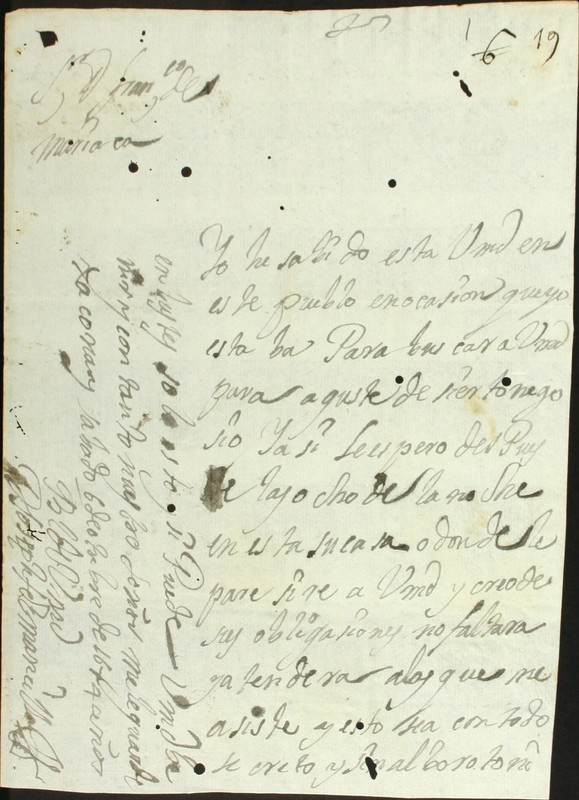 1 6 19
Sr D franco de
Mari ca
Yo he sabido esta Vmd en
este pueblo en ocasion que yo
estaba Para buscar a Vmd
para ajuste de sierto nego
sio Ya si le espero des Pues
de las ocho de la noche
en esta su casa o donde le
paresiere a Vmd y creo de
sus obligasiones no faltara
y atendera a las que me
asiste y esto sea con todo
secreto y sin alboroto ni
en
solo esto si Puede Vmd
y con tanto nuestro señor me le guarde
sabado 6 de de años
BLM d Vmd
Joseph